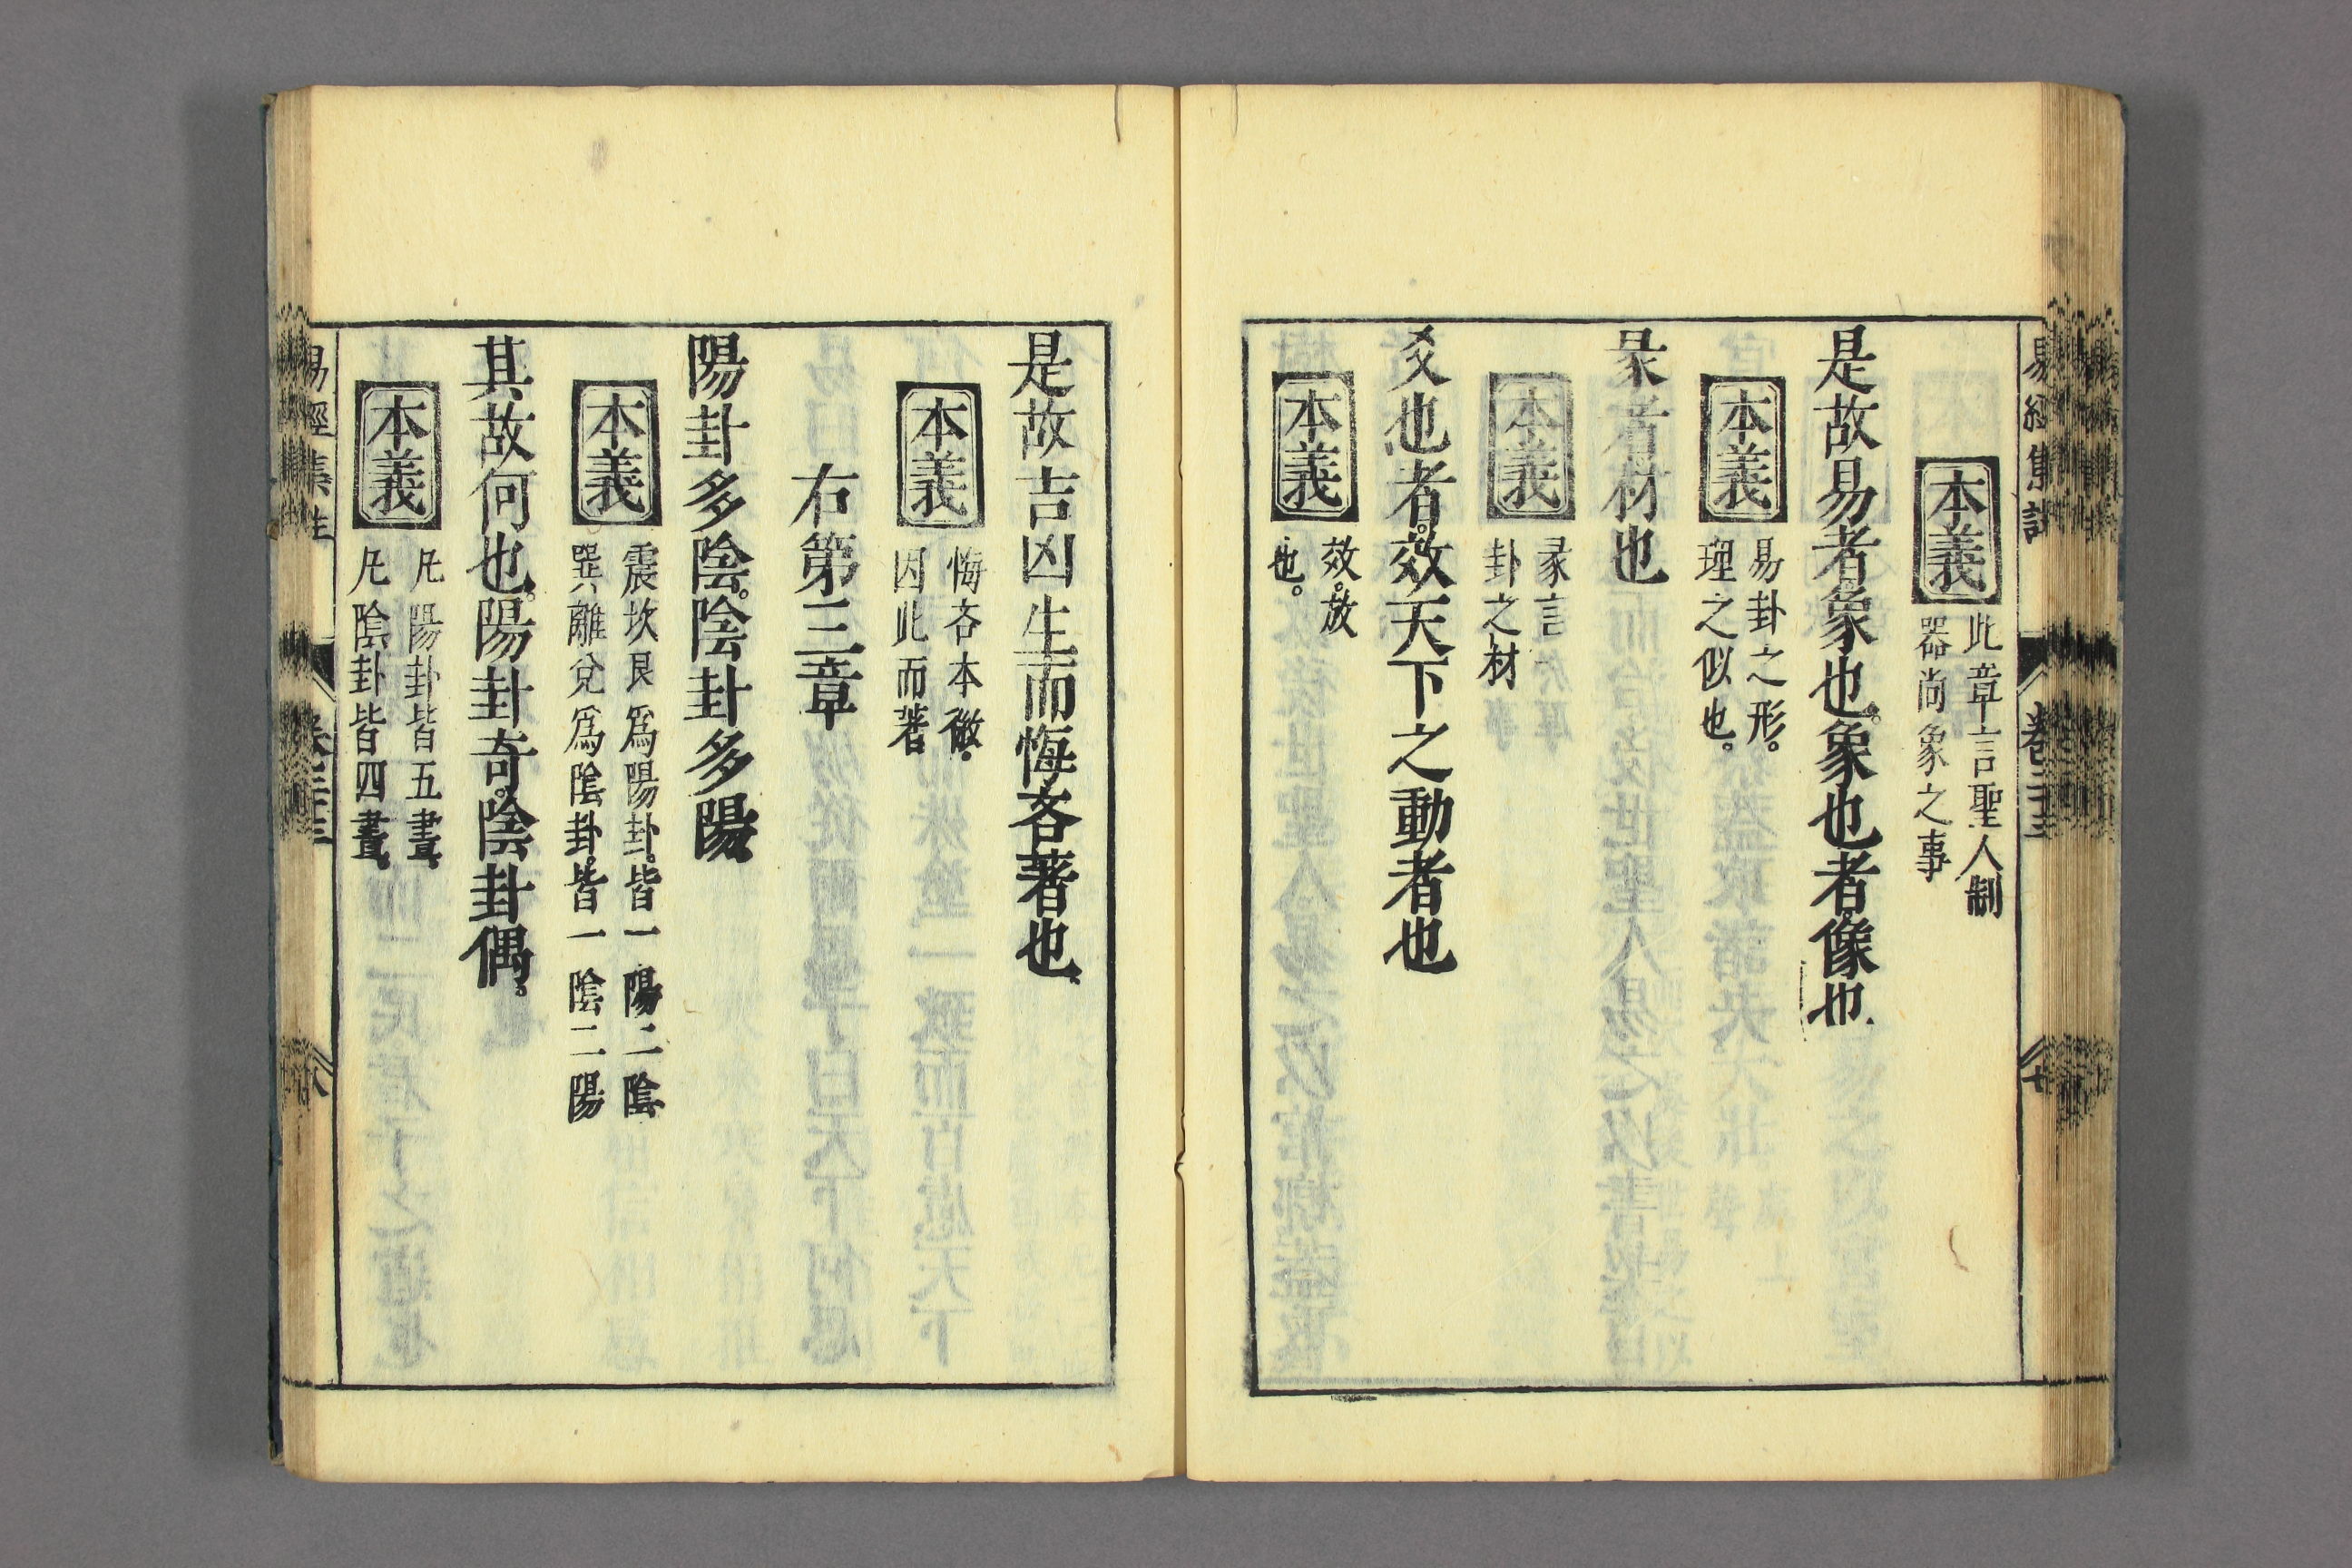 本義
此章言聖人制
器尚象之事
是故易者。象也。象也者。像也
本義
易卦之形。
理之似也。
彖者材也
本義
彖言一
卦之材
爻也者。效天下之動者也
本義
效。放
也。
是故吉凶生而悔吝著也
本義
悔吝本微。
因此而著
右第三章
陽卦多陰。陰卦多陽
本義
震坎艮爲陽卦。皆一陽二陰
巽離兌爲陰卦。皆一陰二陽
其故何也。陽卦奇。陰卦偶。
本義
凡陽卦皆五畫。
凡陰卦皆四畫。